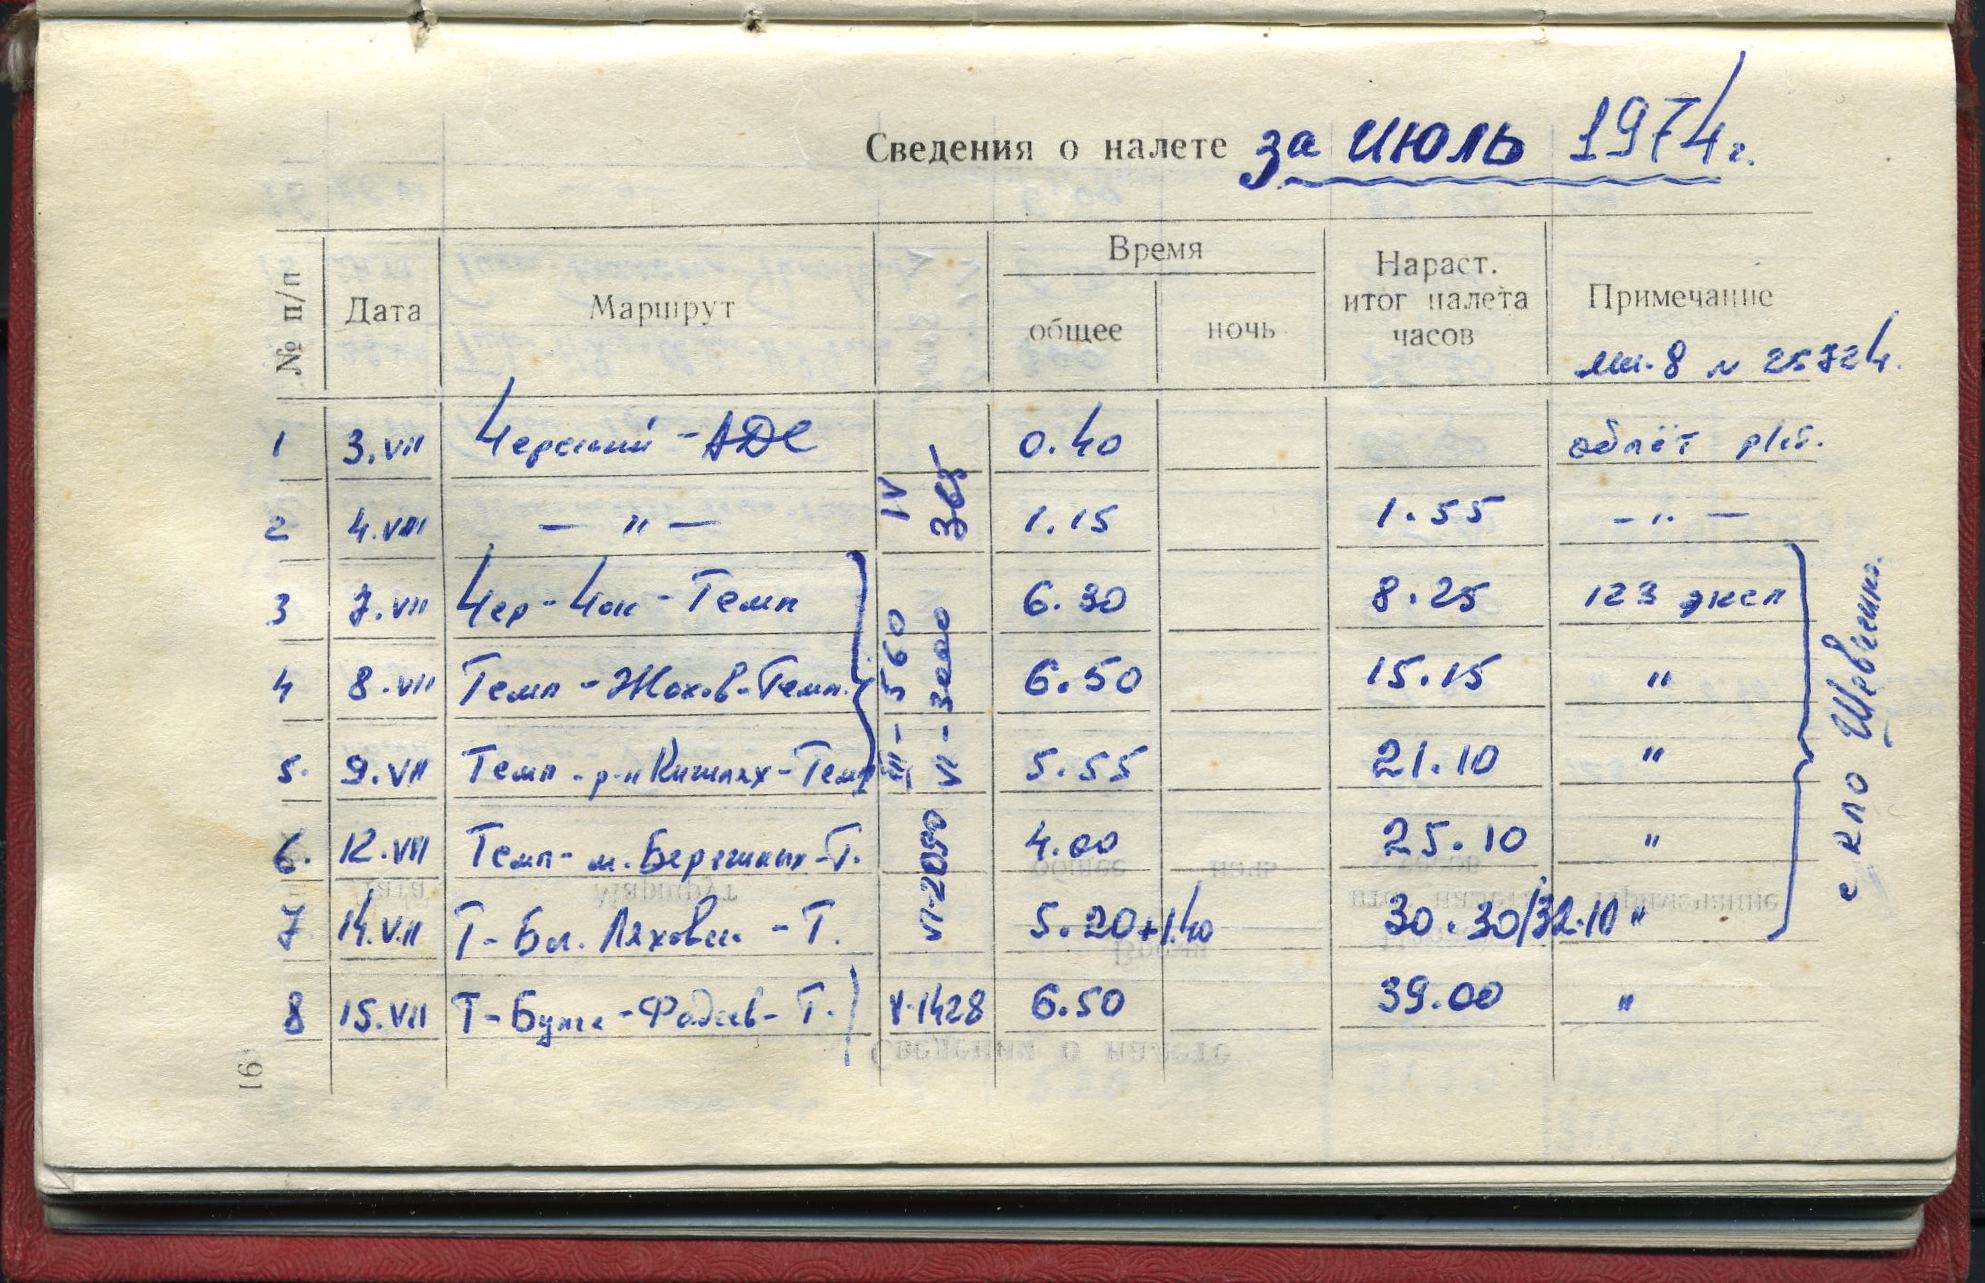 Сведения о налете за июль 1974 г.
№ п/п Дата Маршрут Время Нараст. итог налета часов Примечание
общее ночь
ми-8 N 25724.
1 3.VII Черский - АДС 0.40 облёт р/ст.
2 4.VIII — " — 1.15 1.55 — " —
IV 365
3 7.VII Чер - Чок - Темп 6.30 8.25 123 эксп
4 8.VII Темп - Жохов - Темп. 6.50 15.15 "
5. 9.VII Темп - р-н Кигилях - Темп 5.55 21.10 "
III - 560
VI - 3000
6. 12.VII Темп - м. Бережных - Т. 4.00 25.10 "
7 14.VII Т - Бол. Ляховск. - Т. 5.20+1.40 30.30/32.10 "
VI-2090
8 15.VII Т - Бунге - Фадеев - Т. V-1428 6.50 39.00 "
с кло Шевченко.
16